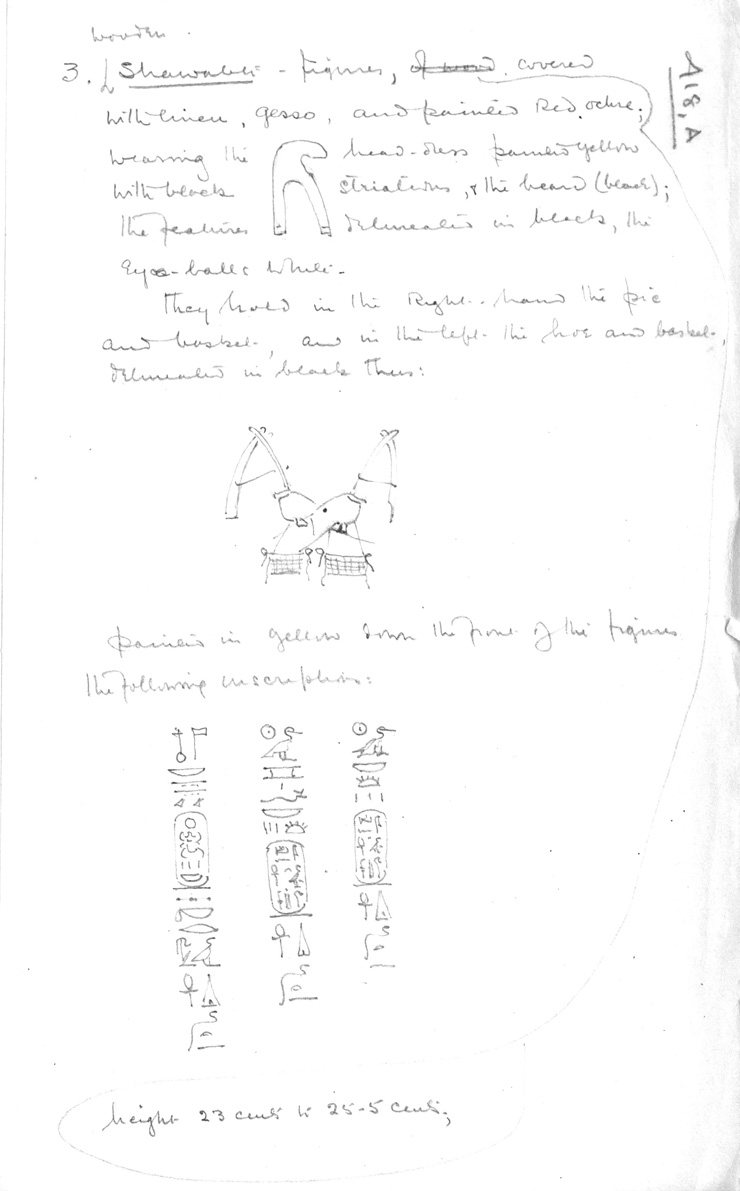 wooden
3. Shawabti - figures, of wood covered
A18, A
with linen, gesso, and painted Red ochre;
wearing the head-dress painted yellow
with black striations, & the beard (black);
the features delineated in black, the
Eye-balls white.
They hold in the Right-hand the pic
and basket, and in the left the hoe and basket,
delineated in black thus:
painted in yellow down the front of the figures
the following inscriptions:
height 23 cents to 25-5 cents;